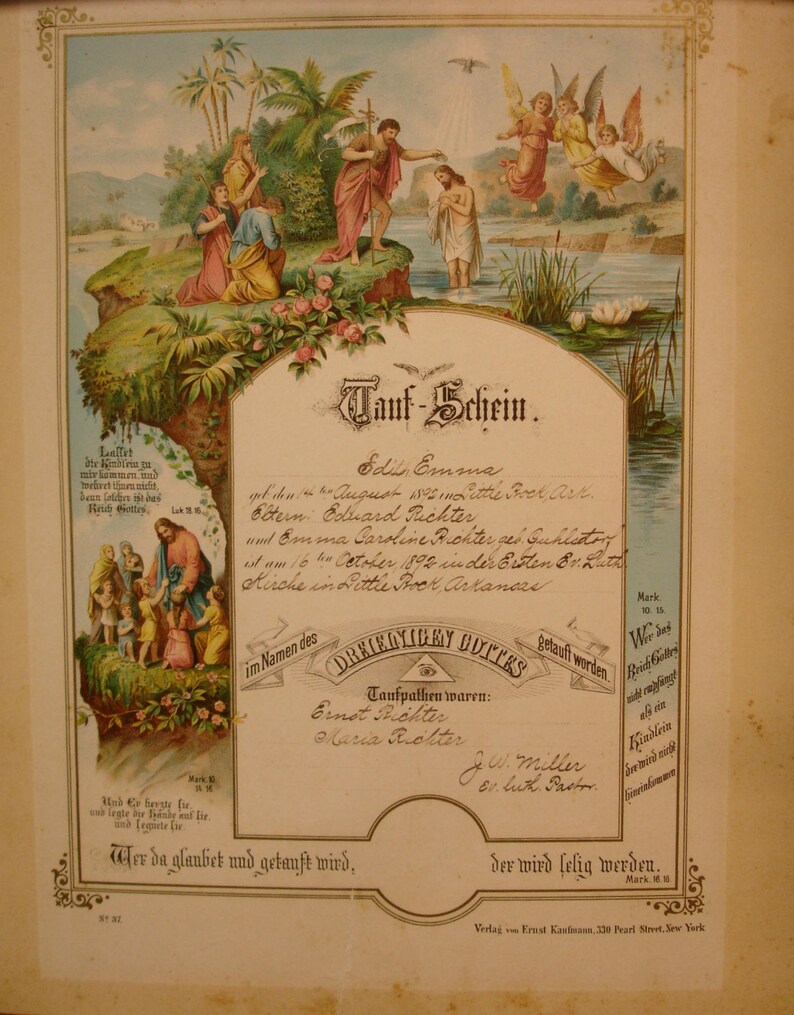 Tauf-Schein.
Edith Emma
geb. den 14ten August 1892 in Little Rock Ark.
Eltern: Eduard Richter
und Emma Caroline Richter geb. Guhlsdorf
ist am 16ten October, 1892 in der Ersten Ev. Luth.
Kirche in Little Rock, Arkansas
im Namen des DREIEINIGEN GOTTES getauft worden.
Taufpathen waren:
Ernst Richter
Maria Richter
J. W. Miller
Ev. luth. Pastor.
Lasset
die Kindlein zu
mir kommen, und
wehret ihnen nicht,
denn solcher ist das
Reich Gottes.
Luk 18. 16.
Mark. 10.
14. 16.
Und Er herzte sie,
und legte die Hände auf sie,
und segnete sie.
Mark.
10. 15.
Wer das
Reich Gottes
nicht empfängt
als ein
Kindlein
der wird nicht
hineinkommen
Wer da glaubet und getauft wird, der wird selig werden.
Mark. 16. 16.
No 37.
Verlag von Ernst Kaufmann, 330 Pearl Street, New York